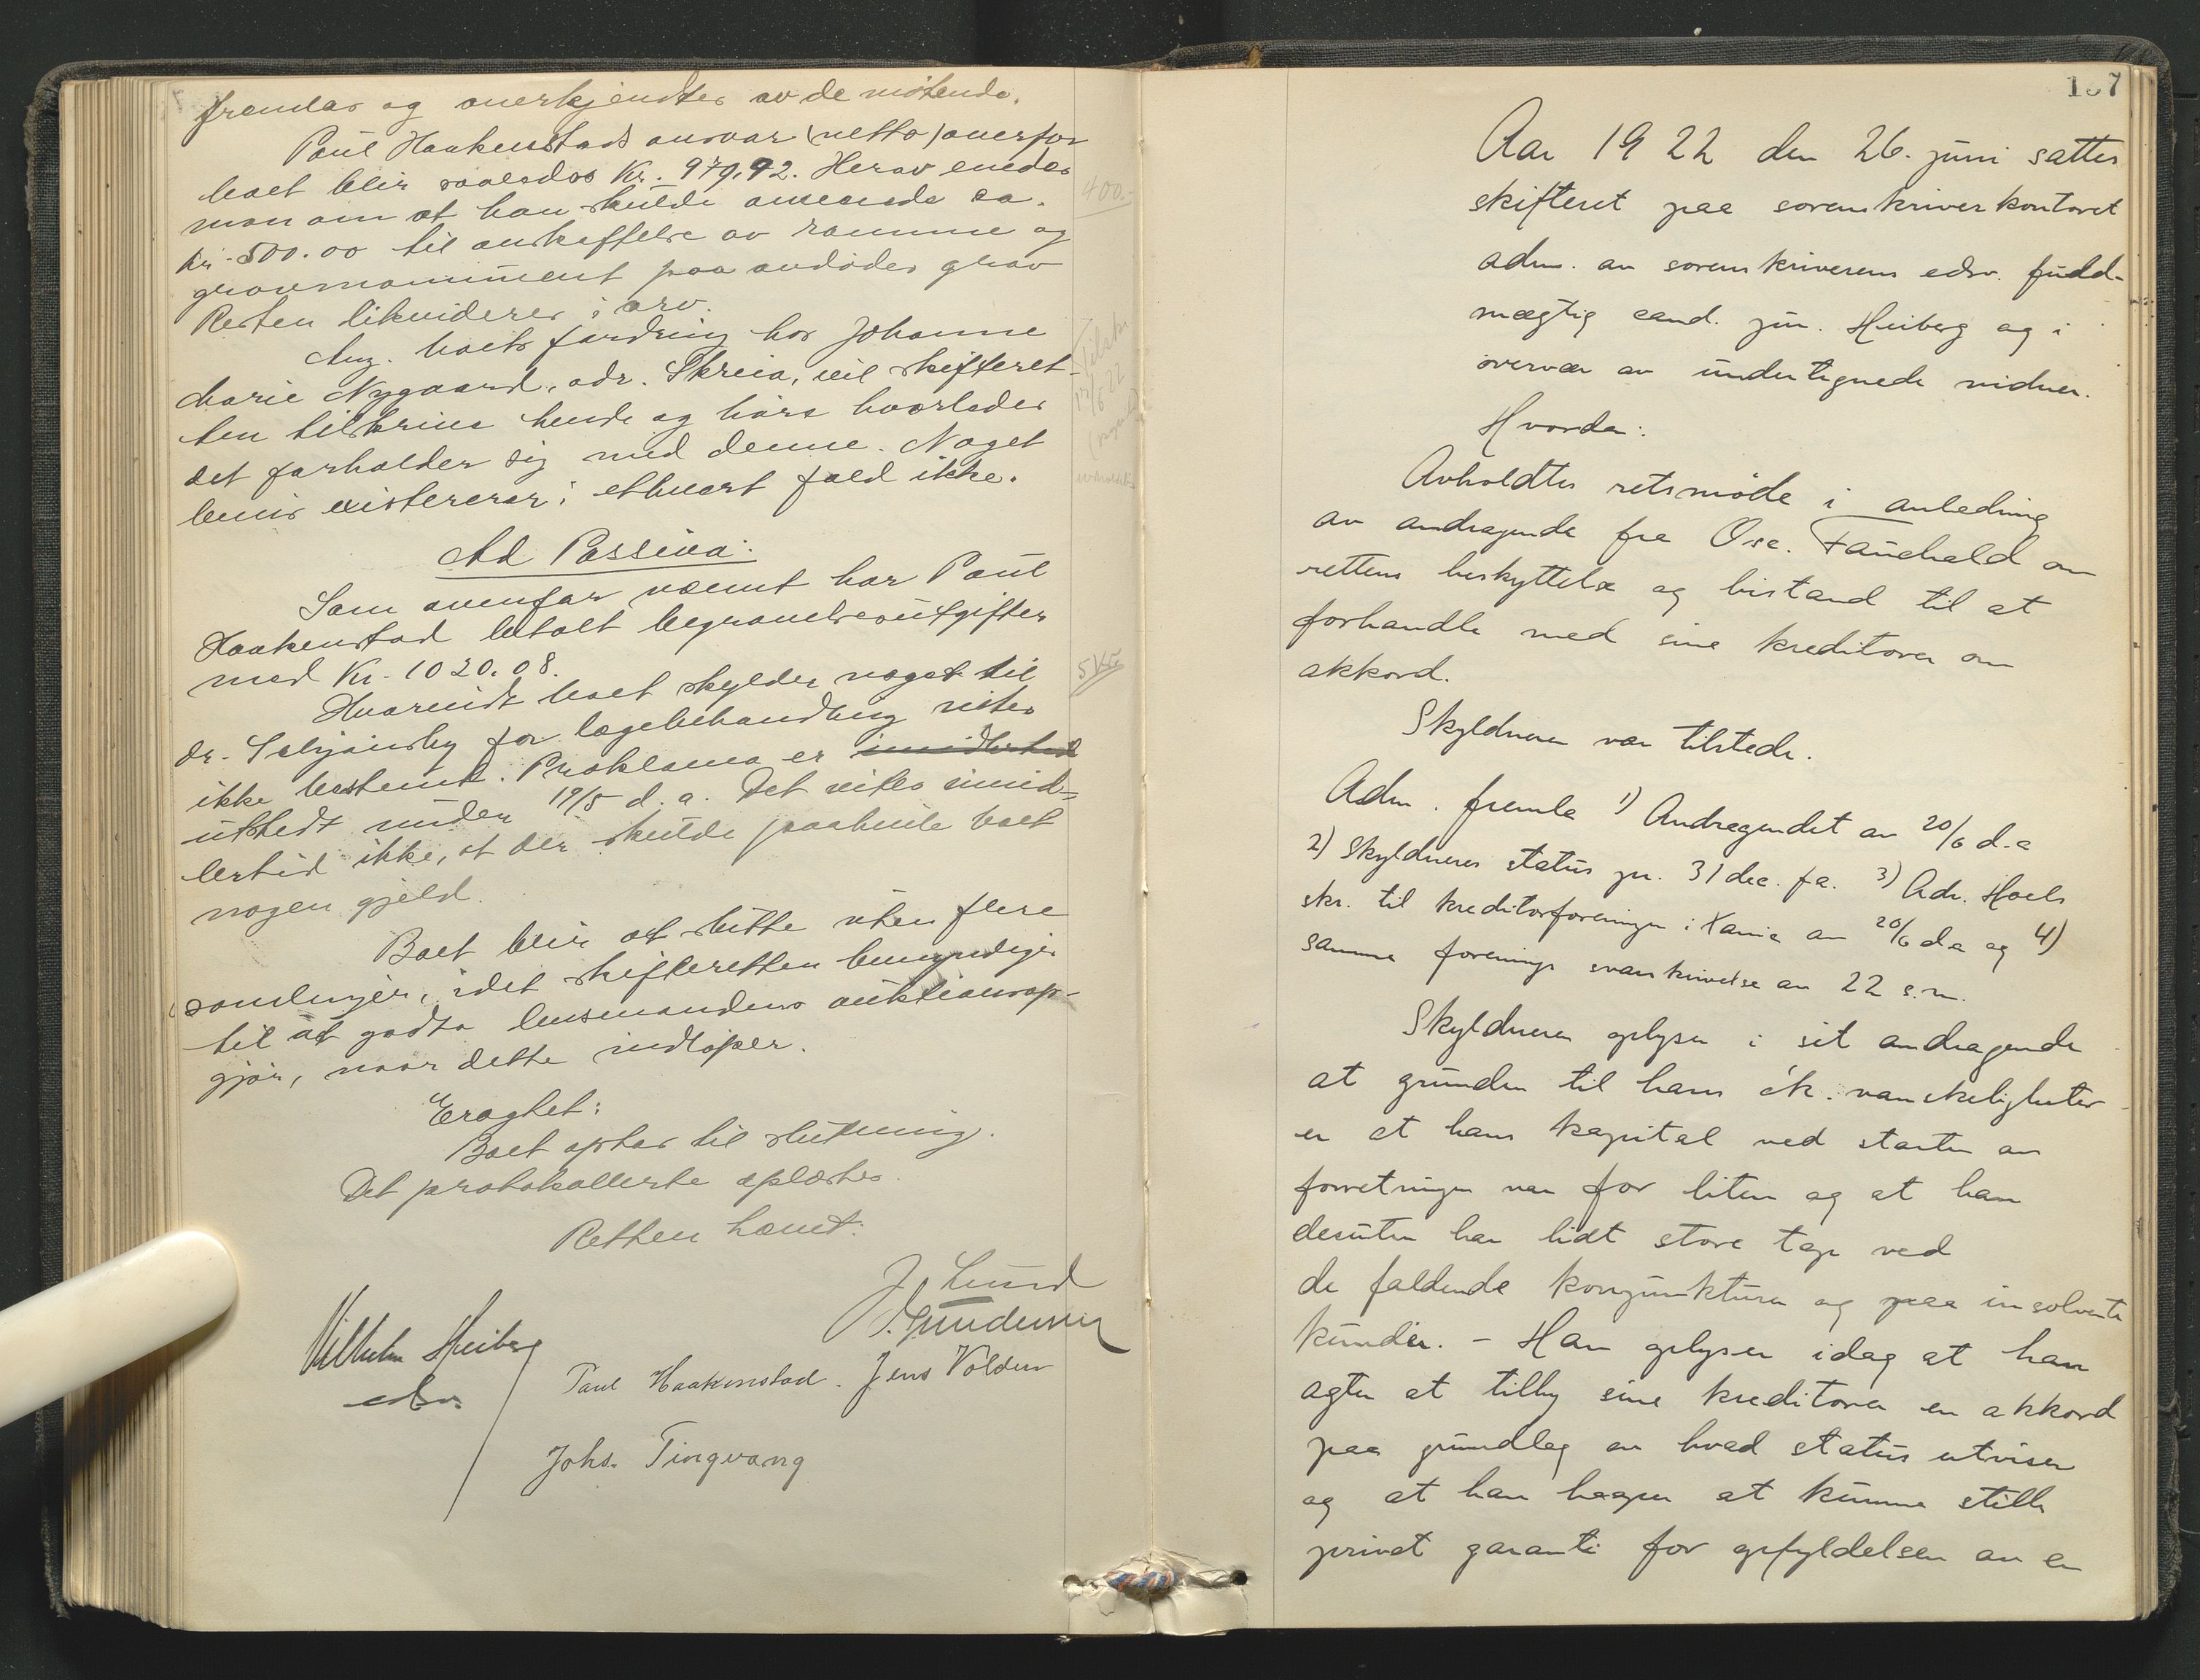 fremlas og anerkjendtes av de møtende.
Paul Haakenstads ansvar (netto) overfor
boet blir saaledes Kr. 979.92. Herav enedes
man om at han skulde anvende ca.
Kr. 500.00 til anskaffelse av ramme og
gravmonument paa avdødes grav
Resten likvideres i arv.
Ang. boets fordring hos Johanne
Marie Nygaard, adr. Skreia, vil skifteret-
ten tilskrive hende og høre hvorledes
det forholder sig med denne. Noget
bevis existerer i ethvert fald ikke.
Ad Passiva:
Som ovenfor nævnt har Paul
Haakenstad betalt begravelsesutgifter
med Kr. 1020.08.
Hvorvidt boet skylder noget til
dr. for lægebehandling vites
ikke bestemt. Proklama er imidlertid
utstedt under 19/5 d.a. Det vites imid=
lertid ikke, at der skulde paahvile boet
nogen gjæld.
Boet blir at slutte uten flere
samlinger, idet skifteretten bemyndiges
til at godta lensmandens auktionsop-
gjør, naar dette indløper.
Eragtet:
Boet optas til slutning.
Det protokollerte oplæstes.
Retten hævet:
J. Lund
J. Gundersen
Vilhelm Heiberg
edsv.
Paul Haakenstad. Jens Volden
Johs. Tingvang
400.-
Tilskr
13/6 22
5 Kr.
137
Aar 1922 den 26. juni sattes
skifteret paa sorenskriverkontoret
adm. av sorenskriverens edsv. fuld-
mægtig cand. jur. Heiberg og i
overvær av undertegnede vidner.
Hvorda:
Avholdtes retsmøde i anledning
av andragende fra Osc. Fauchald om
rettens beskyttelse og bistand til at
forhandle med sine kreditorer om
akkord.
Skyldneren var tilstede.
Adm. fremla 1) Andragendet av 20/6 d.a
2) Skyldneres status pr. 31 dec. f.a. 3) Adv. Hoels
skr. til kreditorforeningen i Xania av 20/6 d.a og 4)
samme forenings svarskrivelse av 22 s.m.
Skyldneren oplyser i sit andragende
at grunden til hans øk. vanskeligheter
er at hans kapital ved starten av
forretningen var for liten og at han
desuten har lidt store tap ved
de faldende konjunkturer og paa insolvente
kunder. - Han oplyser idag at han
agter at tilby sine kreditorer en akkord
paa grundlag av hvad status utviser
og at han haaper at kunne stille
privat garanti for opfyldelsen av en